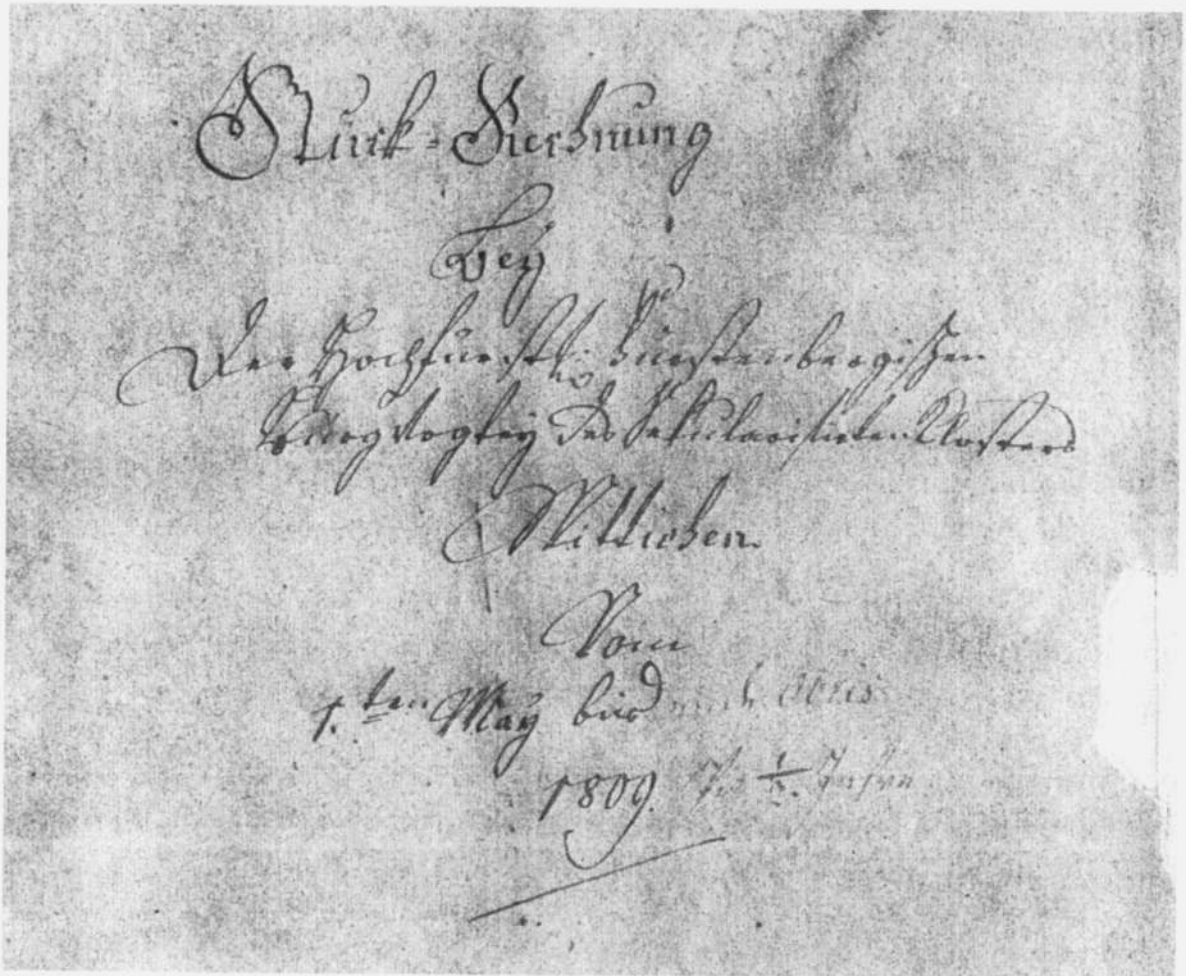 Ruck-Rechnung
Bey
Der Hochfürstl: Fürstenbergischen
Burgvogtey des Sekularisirten Klosters
Wittichen.
Vom
1.ten May bis
1809.